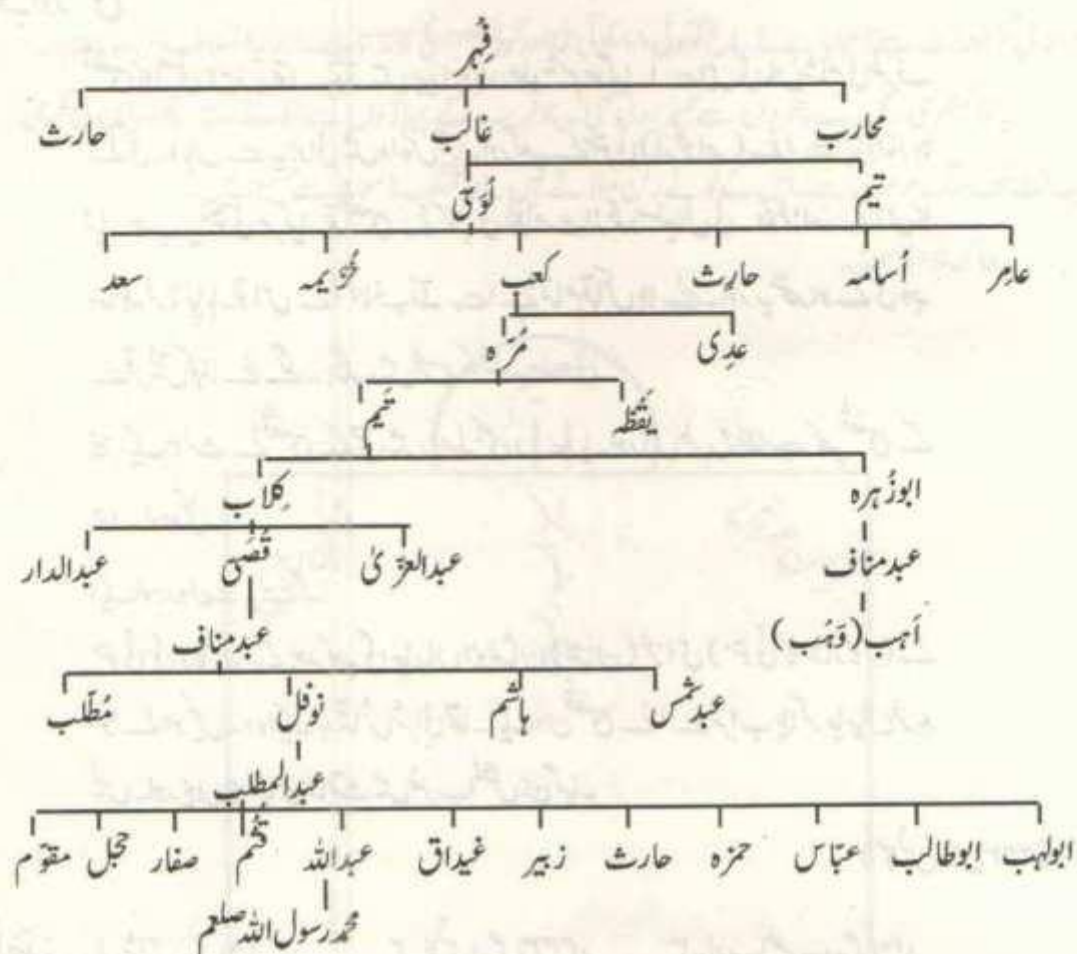 فِہر
محارب غالب حارث
تیم لُوَیّ
عامِر اُسامہ حارِث کعب خُزیمہ سعد
عدِی مُرّہ
یَقُظہ تَیم
ابوزُہرہ کِلاب
عبدمناف عبدالعزّیٰ قُصَی عبدالدار
اَہب (وَہُب) عبدمناف
عبدشمس ہاشم نوفل مُطّلب
عبدالمطلب
ابولہب ابوطالب عبّاس حمزہ حارث زبیر غیداق عبداللہ قُثم صفار حجل مقوّم
محمدرسول اللہ صلعم